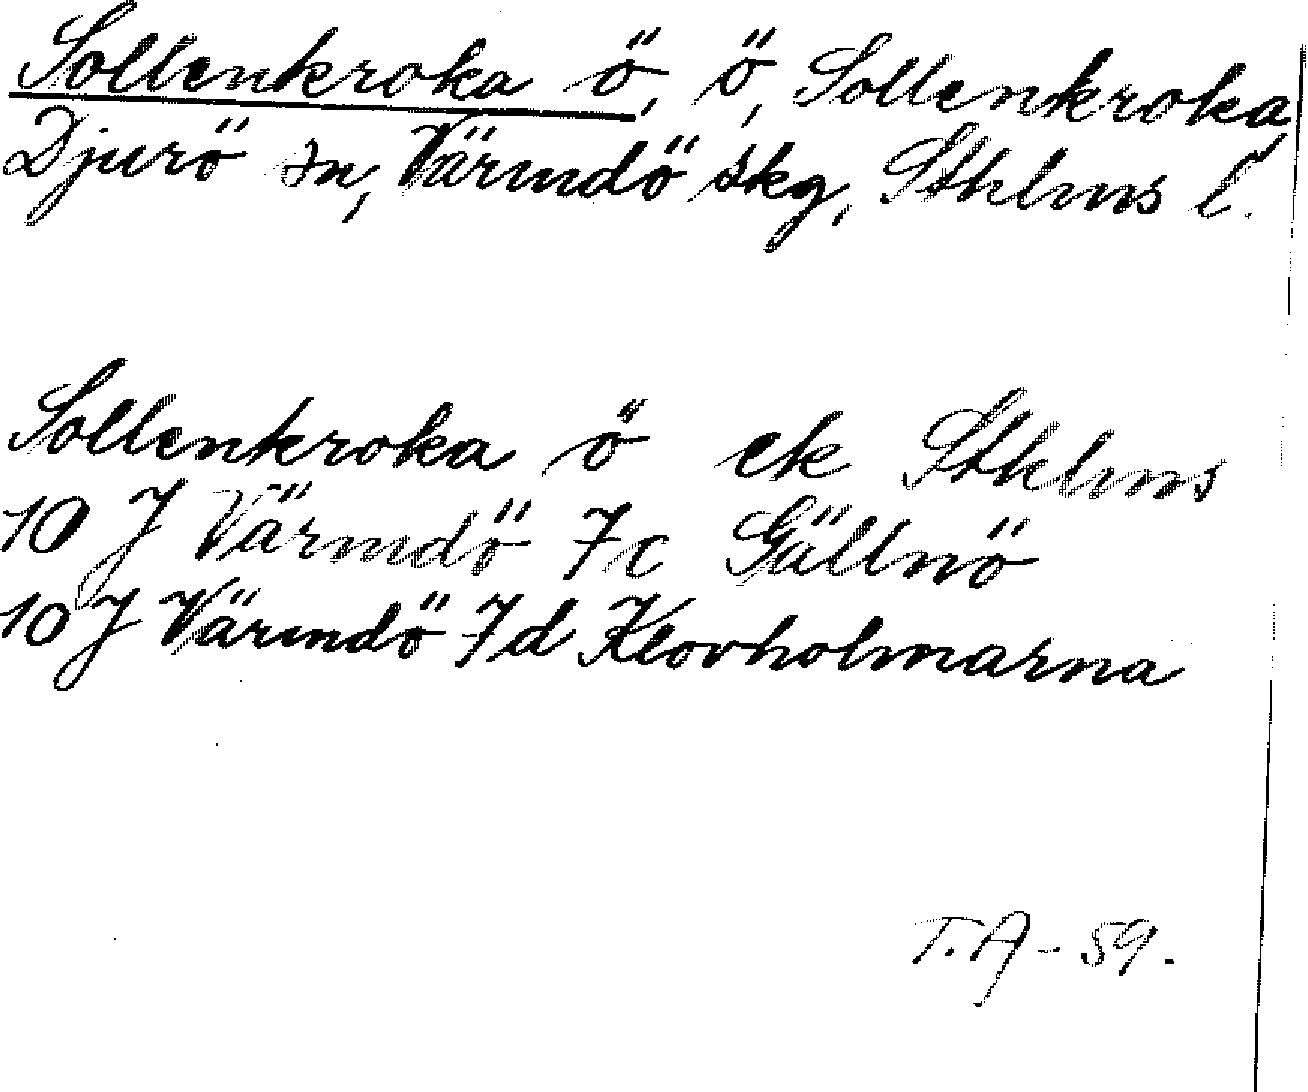 Sollenkroka ö, ö, Sollenkroka,
Djurö sn, Värmdö skg, Sthlms l.
Sollenkroka ö ek Sthlms
10 J Värmdö 7c Gällnö
10 J Värmdö 7d Klovholmarna
T.A - 59.